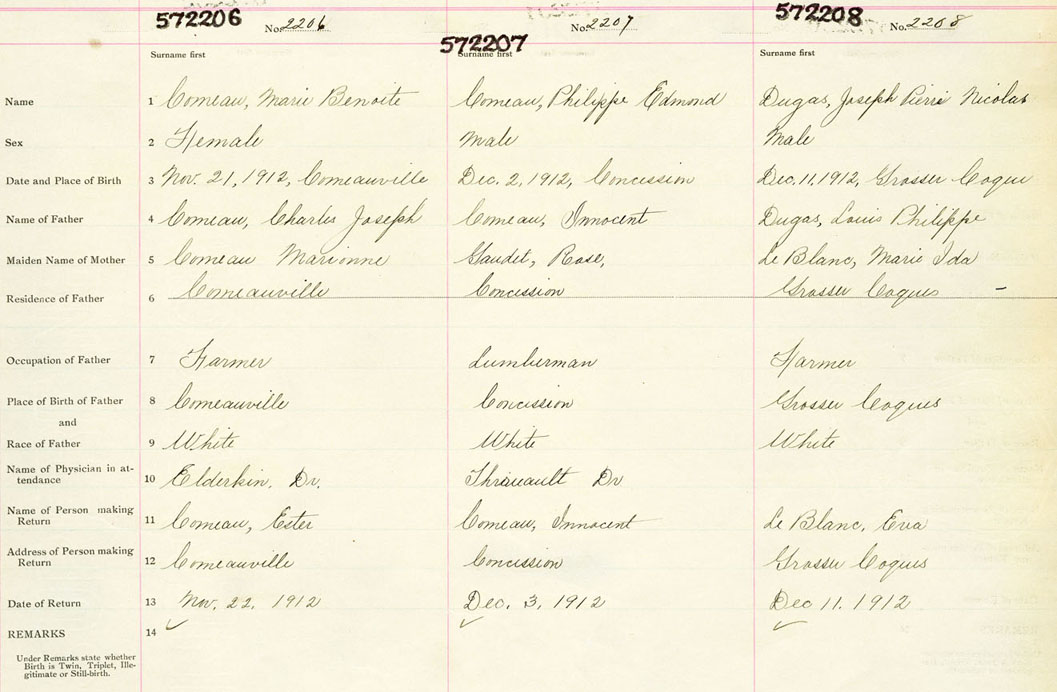 572206 No. 2206 572207 No. 2207 572208 No. 2208
Surname first Surname first Surname first
Name 1 Comeau, Marie Benoite Comeau, Philippe Edmond Dugas, Joseph Pierre Nicolas
Sex 2 Female Male Male
Date and Place of Birth 3 Nov. 21, 1912, Comeauville Dec. 2, 1912, Concession Dec. 11, 1912, Grosser Coques
Name of Father 4 Comeau, Charles Joseph Comeau, Innocent Dugas, Louis Philippe
Maiden Name of Mother 5 Comeau Marionne Gaudet, Rose, Le Blanc, Marie Ida
Residence of Father 6 Comeauville Concession Grosser Coques -
Occupation of Father 7 Farmer Lumberman Farmer
Place of Birth of Father 8 Comeauville Concession Grosser Coques
and
Race of Father 9 White White White
Name of Physician in at-
tendance 10 Elderkin, Dr. Dr
Name of Person making
Return 11 Comeau, Ester Comeau, Innocent Le Blanc, Eva
Address of Person making
Return 12 Comeauville Concession Grosser Coques
Date of Return 13 Nov. 22, 1912 Dec. 3, 1912 Dec 11. 1912
REMARKS 14
Under Remarks state whether
Birth is Twin, Triplet, Ille-
gitimate or Still-birth.